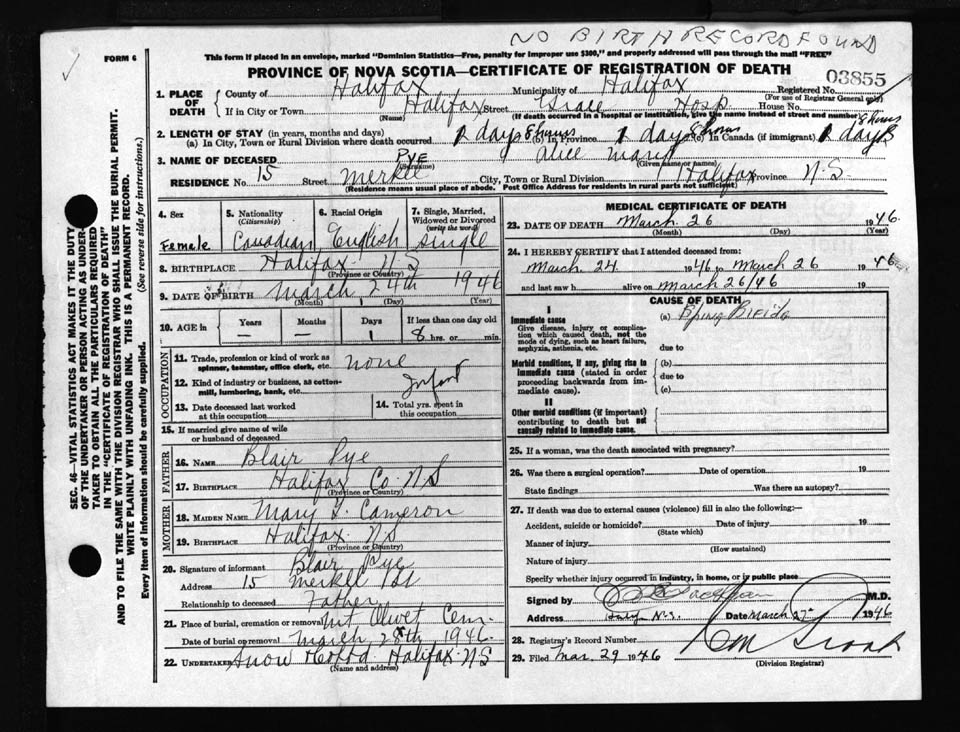 NO BIRTH RECORD FOUND
FORM 6
This form if placed in an envelope, marked "Dominion Statistics—Free, penalty for improper use $300," and properly addressed will pass through the mail "FREE"
PROVINCE OF NOVA SCOTIA—CERTIFICATE OF REGISTRATION OF DEATH
03855
1. PLACE OF DEATH
County of Halifax Municipality of Halifax Registered No.
(For use of Registrar General only)
If in City or Town Halifax Street Grace Hosp. House No.
(Name) (If death occurred in a hospital or institution, give the name instead of street and number)
2. LENGTH OF STAY (in years, months and days)
(a) In City, Town or Rural Division where death occurred 1 day 8 hours (b) In Province 1 day 8 hours (c) In Canada (if immigrant) 1 day 8 hours
3. NAME OF DECEASED PYE Alice Mary
(Surname) (Given name or names)
RESIDENCE No. 15 Street Merkel City, Town or Rural Division Halifax Province N.S
(Residence means usual place of abode. Post Office Address for residents in rural parts not sufficient)
4. Sex Female
5. Nationality (Citizenship) Canadian
6. Racial Origin English
7. Single, Married, Widowed or Divorced (write the word) Single
8. BIRTHPLACE Halifax N.S
(Province or Country)
9. DATE OF BIRTH March 24th 1946
(Month) (Day) (Year)
10. AGE in Years Months Days If less than one day old
1 8 hrs. or min.
OCCUPATION
11. Trade, profession or kind of work as spinner, teamster, office clerk, etc. none
12. Kind of industry or business, as cotton-mill, lumbering, bank, etc. Infant
13. Date deceased last worked at this occupation
14. Total yrs. spent in this occupation
15. If married give name of wife or husband of deceased
FATHER
16. NAME Blair Pye
17. BIRTHPLACE Halifax Co. N S
(Province or Country)
MOTHER
18. MAIDEN NAME Mary I. Cameron
19. BIRTHPLACE Halifax NS
(Province or Country)
20. Signature of informant Blair Pye
Address 15 Merkel St
Relationship to deceased Father
21. Place of burial, cremation or removal Mt Olivet Cem.
Date of burial or removal March 28th 1946.
22. UNDERTAKER Snow Halifax NS
(Name and address)
MEDICAL CERTIFICATE OF DEATH
23. DATE OF DEATH March 26 1946.
(Month) (Day) (Year)
24. I HEREBY CERTIFY that I attended deceased from:
March 24 1946 to March 26 1946
and last saw h alive on March 26/46 19
CAUSE OF DEATH
I
Immediate cause (a) Spina Bifida
Give disease, injury or complication which caused death, not the mode of dying, such as heart failure, asphyxia, asthenia, etc.
due to
Morbid conditions, if any, giving rise to immediate cause (stated in order proceeding backwards from immediate cause).
(b)
due to
(c)
II
Other morbid conditions (if important) contributing to death but not causally related to immediate cause.
25. If a woman, was the death associated with pregnancy?
26. Was there a surgical operation? Date of operation 19
State findings Was there an autopsy?
27. If death was due to external causes (violence) fill in also the following:—
Accident, suicide or homicide? Date of injury 19
(State which)
Manner of injury
(How sustained)
Nature of injury
Specify whether injury occurred in industry, in home, or in public place
Signed by M.D.
Address N.S. Date March 27th 1946
28. Registrar's Record Number
29. Filed Mar. 29 1946
(Division Registrar)
SEC. 46—VITAL STATISTICS ACT MAKES IT THE DUTY
OF THE UNDERTAKER OR PERSON ACTING AS UNDER-
TAKER TO OBTAIN ALL THE PARTICULARS REQUIRED
IN THE "CERTIFICATE OF REGISTRATION OF DEATH"
AND TO FILE THE SAME WITH THE DIVISION REGISTRAR WHO SHALL ISSUE THE BURIAL PERMIT.
WRITE PLAINLY WITH UNFADING INK. THIS IS A PERMANENT RECORD.
Every item of information should be carefully supplied. (See reverse side for instructions.)